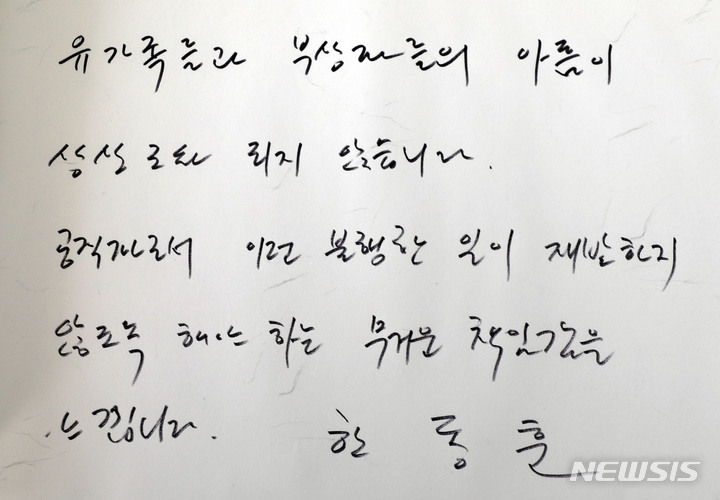 유가족들과 부상자들의 아픔이
상상조차 되지 않습니다.
공직자로서 이런 불행한 일이 재발하지
않도록 해야 하는 무거운 책임감을
느낍니다. 한 동 훈
NEWSIS